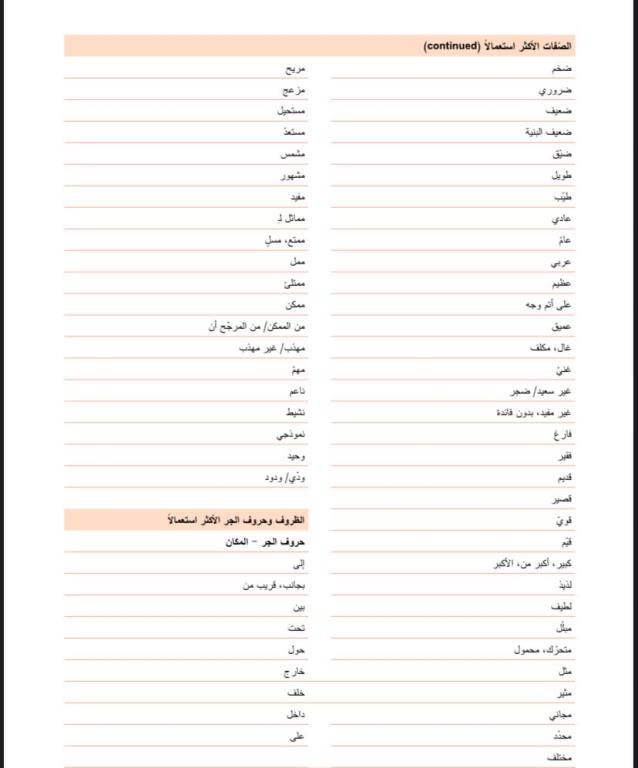 الصّفات الأكثر استعمالاً (continued)
ضخم
ضروري
ضعيف
ضعيف البنية
ضيّق
طويل
طيّب
عادي
عامّ
عربي
عظيم
على أتم وجه
عميق
غال، مكلف
غنيّ
غير سعيد/ ضجر
غير مفيد، بدون فائدة
فارغ
فقير
قديم
قصير
قويّ
قيّم
كبير، أكبر من، الأكبر
لذيذ
لطيف
مبلّل
متحرّك، محمول
مثل
مثير
مجاني
محدّد
مختلف
مريح
مزعج
مستحيل
مستعدّ
مشمس
مشهور
مفيد
مماثل لـِ
ممتع، مسلٍ
ممل
ممتلئ
ممكن
من الممكن/ من المرجّح أن
مهذب/ غير مهذب
مهمّ
ناعم
نشيط
نموذجي
وحيد
ودّي/ ودود
الظروف وحروف الجر الأكثر استعمالاً
حروف الجر – المكان
إلى
بجانب، قريب من
بين
تحت
حول
خارج
خلف
داخل
على